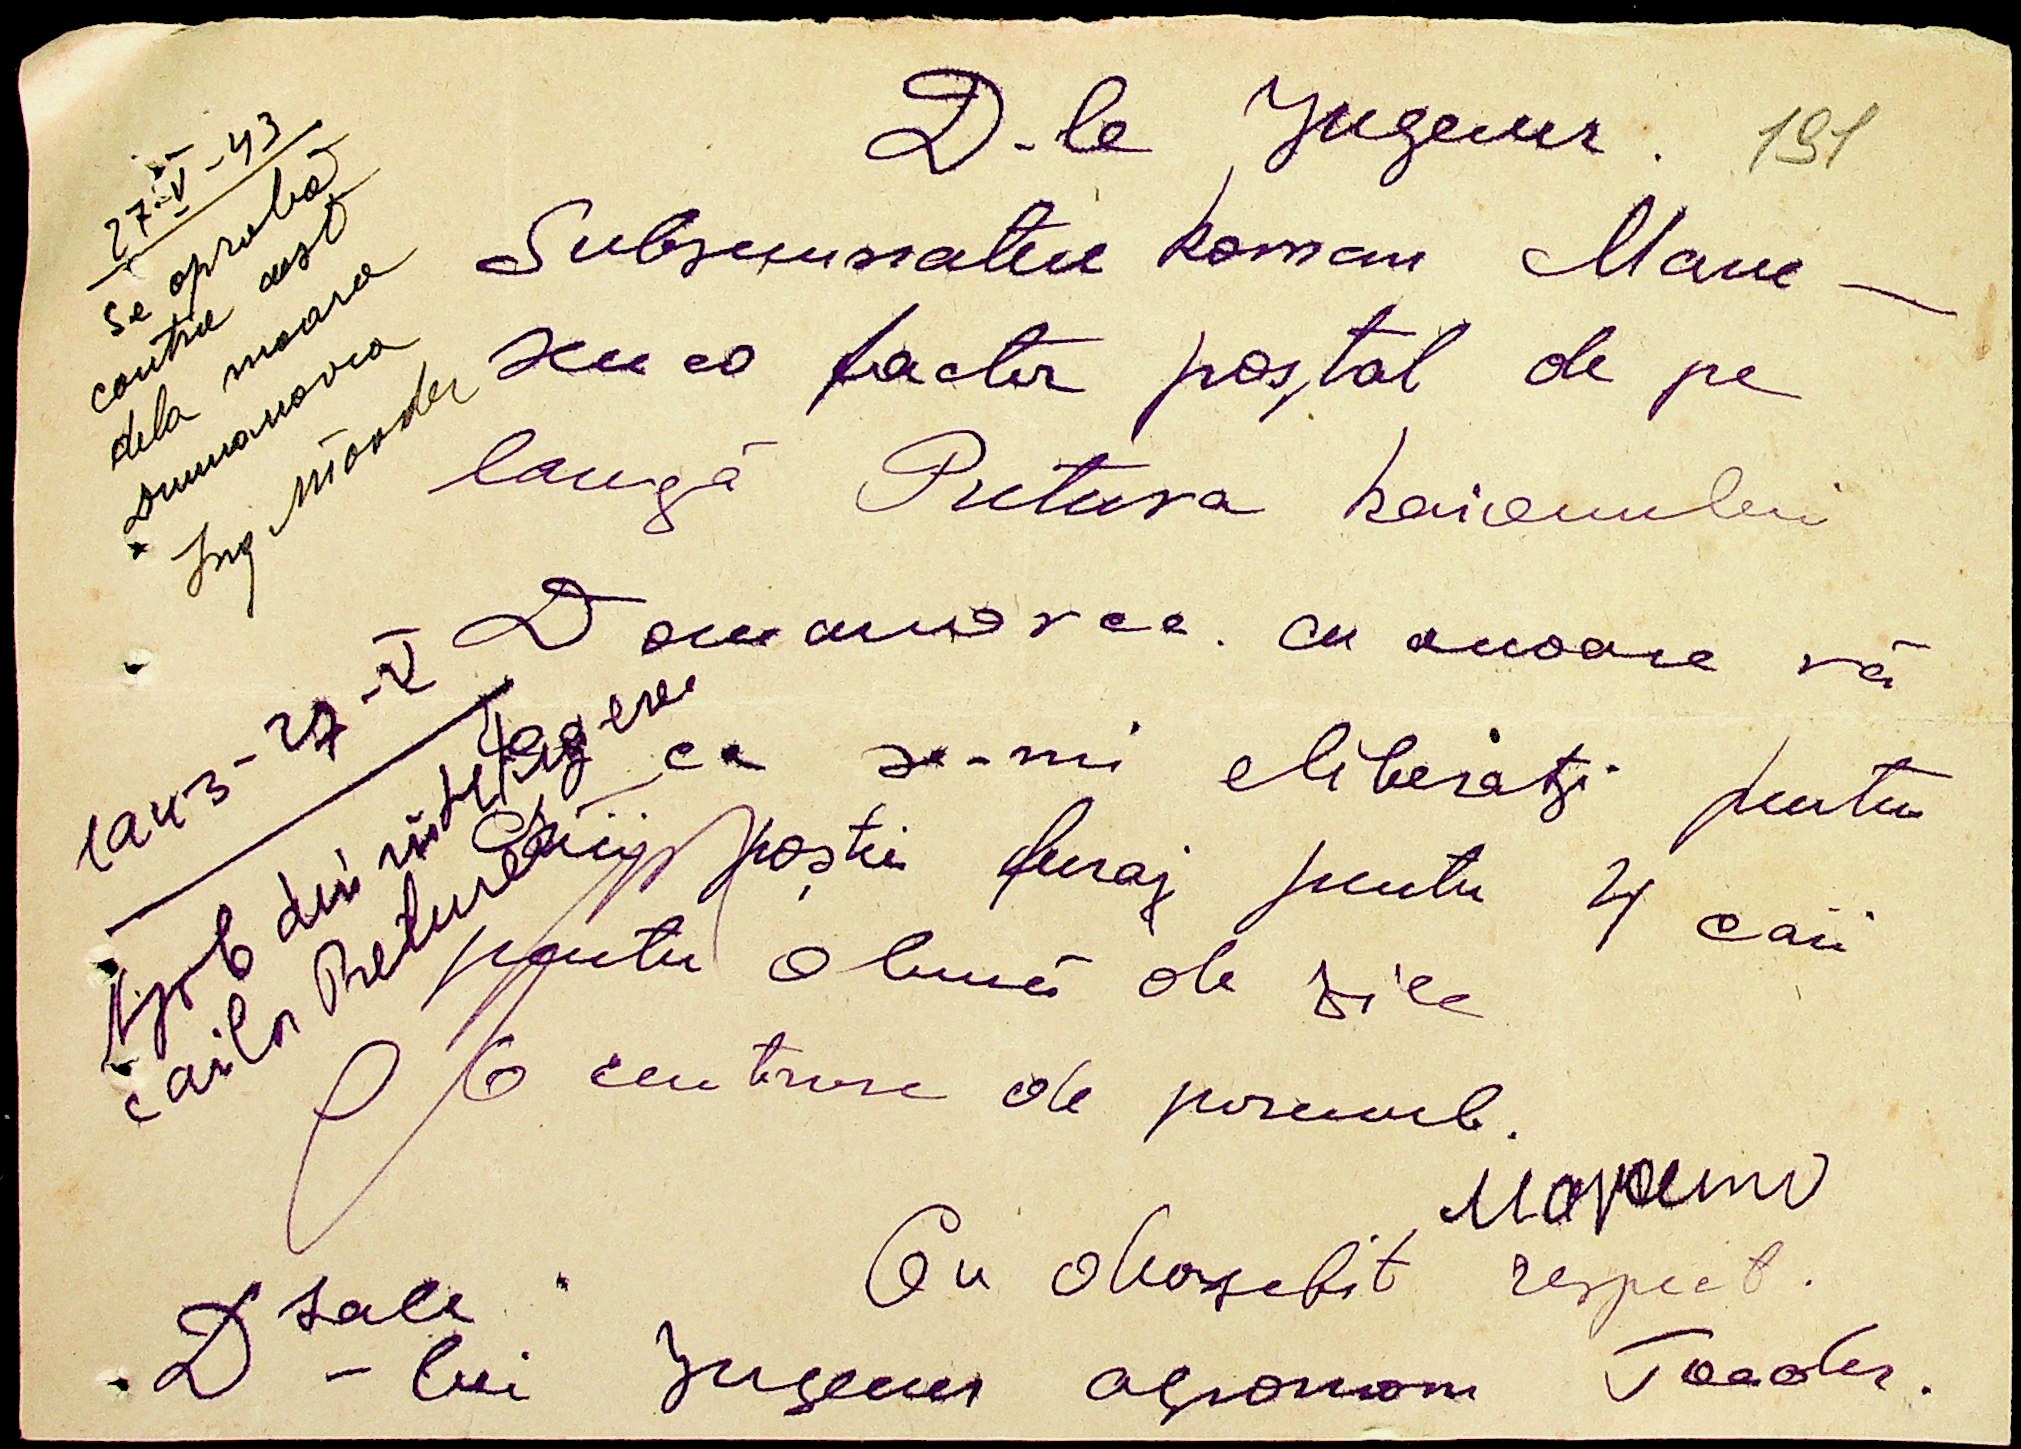 D-le Inginer.
191
Subsemnatul Roman Mane-
scu ca factor poștal de pe
langă Pretura Raionului
Domanovca. cu onoare vă
ca se-mi eliberați pentru
caii poștii furaj pentru 4 caii
pentru o lună de zile
6 centnere de porumb.
Cu deosebit respect.
D sale
D-lui Inginer agronom Toader.
27-V-43
Se aprobă
contra cost
dela moara
Dumanovca
Ing
1943-27-V
Aprob din
cailor Preturei